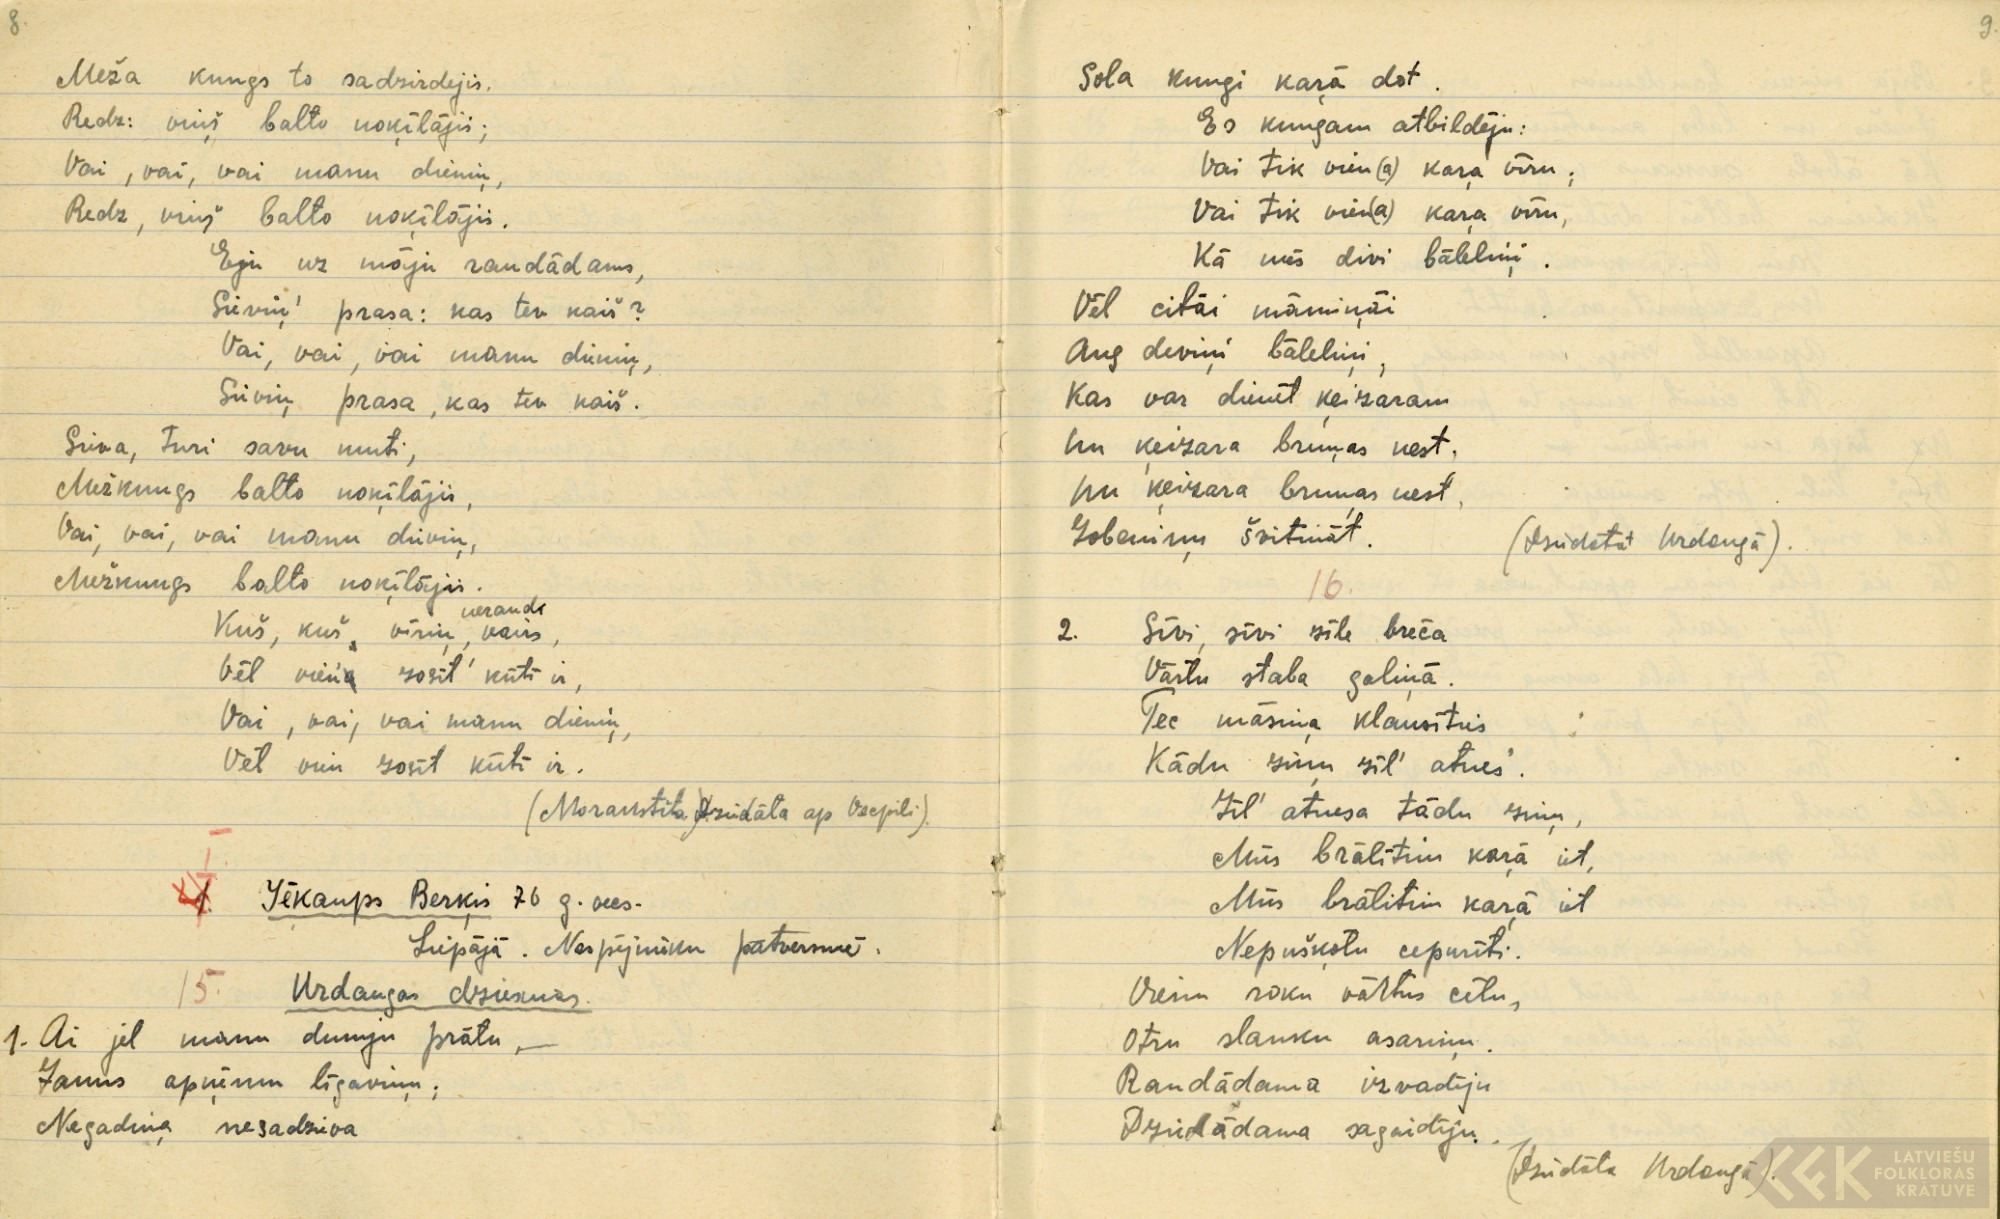 8.
Meža kungs to sadzirdejis.
Redz: viņš balto nokīlājis;
Vai, vai, vai manu dieniņ,
Redz, viņš balto nokīlājis.
Eju uz māju raudādams,
Sieviņ' prasa: kas tev kaiš?
Vai, vai, vai manu dieniņ,
Sieviņ prasa, kas tev kaiš.
Sieva, turi savu muti,
Mežkungs balto nokīlājis,
Vai, vai, vai manu dieviņ,
Mežkungs balto nokīlājis.
neraudi
Kuš, kuš, vīriņ, vairs,
Vēl viena zosīt' kūtī ir,
Vai, vai, vai manu dieniņ,
Vēl vien zosīt kūtī ir.
(Dziedāta ap Vecpili).
I
1. Jēkaups Berķis 76 g. vecs.
Liepājā. Nespējnieku patversmē.
15. Urdaugas dziesmas.
1. Ai jel manu dumju prātu, —
Jauns apņēmu līgaviņu;
Negadiņa nesadzīva
9.
Sola kungi kaŗā dot.
Es kungam atbildēju:
Vai tik vien(a) kaŗa vīru;
Vai tik vien(a) kaŗa vīru,
Kā mēs divi bāleliņi.
Vēl citāi māmiņāi
Aug deviņi bāleliņi,
Kas var dienēt ķeizaram
Un ķeizara bruņas nest,
Un ķeizara bruņas nest,
Zobeniņu švitināt. (Dziedāta Urdaugā).
16.
2. Sīvi, sīvi zīle brēca
Vārtu staba galiņā.
Tec māsiņa klausīties
Kādu ziņu zīl' atnes'.
Zīl' atnesa tādu ziņu,
Mūs brālītim kaŗā iet,
Mūs brālītim kaŗā iet
Nepušķotu cepurīti.
Vienu roku vārtus cēlu,
Otru slauku asariņu.
Raudādama izvadīju
Dziedādama sagaidīju.
(Dziedāta Urdaugā).
LATVIEŠU
FOLKLORAS
KRĀTUVE